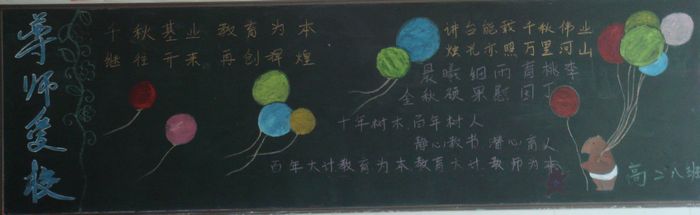 尊师爱校
千秋基业 教育为本
继往开来 再创辉煌
讲台能载千秋伟业
烛光亦照万里河山
晨曦细雨育桃李
金秋硕果慰园丁
十年树木,百年树人
静心教书,潜心育人
百年大计教育为本教育大计,教师为本
高二八班